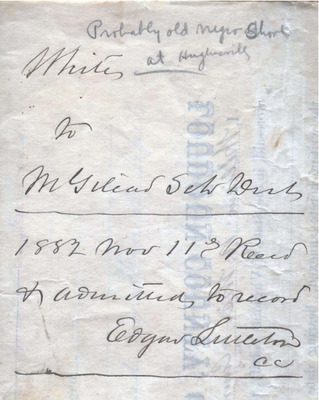 Probably old negro School
at Hughesville
White
to
Mt Gilead Sch Dist
1882 Nov 11th Recd
& admitted to record
Edgar Littleton
CC